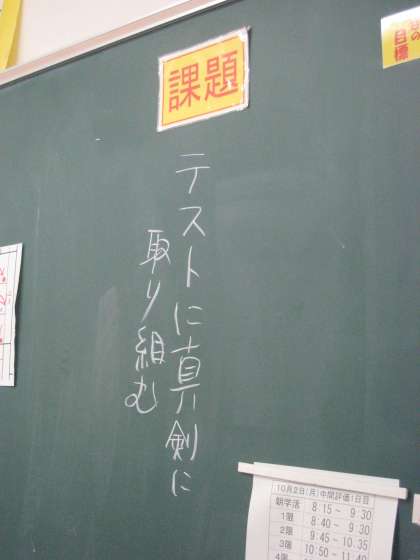 課題
テストに真剣に
取り組む
の
目標
10月2日(月)中間評価1日目
朝学活 8:15～ 9:30
1限 8:40～ 9:30
2限 9:45～10:35
3限 10:50～
4限